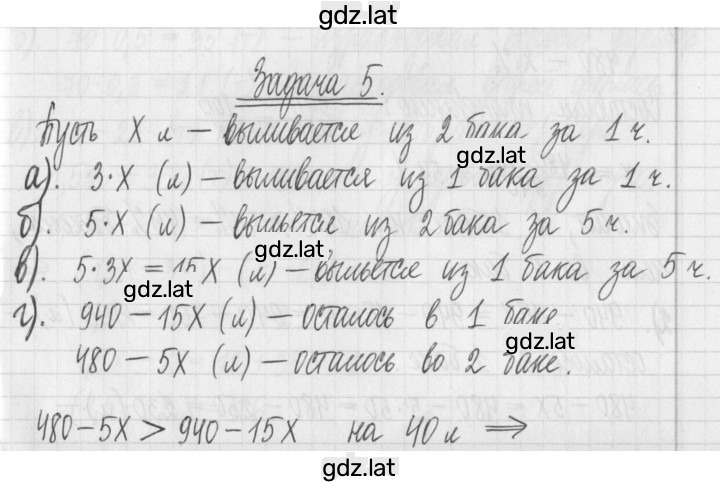 gdz.lat
Задача 5.
Пусть х л – выливается из 2 бака за 1 ч.
gdz.lat
а). 3·х (л) – выливается из 1 бака за 1 ч.
б). 5·х (л) – выльется из 2 бака за 5 ч.
gdz.lat
в). 5·3х = 15х (л) – выльется из 1 бака за 5 ч.
gdz.lat
г). 940 – 15х (л) – осталось в 1 баке.
gdz.lat
480 – 5х (л) – осталось во 2 баке.
480 – 5х > 940 – 15х на 40 л ⇒
gdz.lat